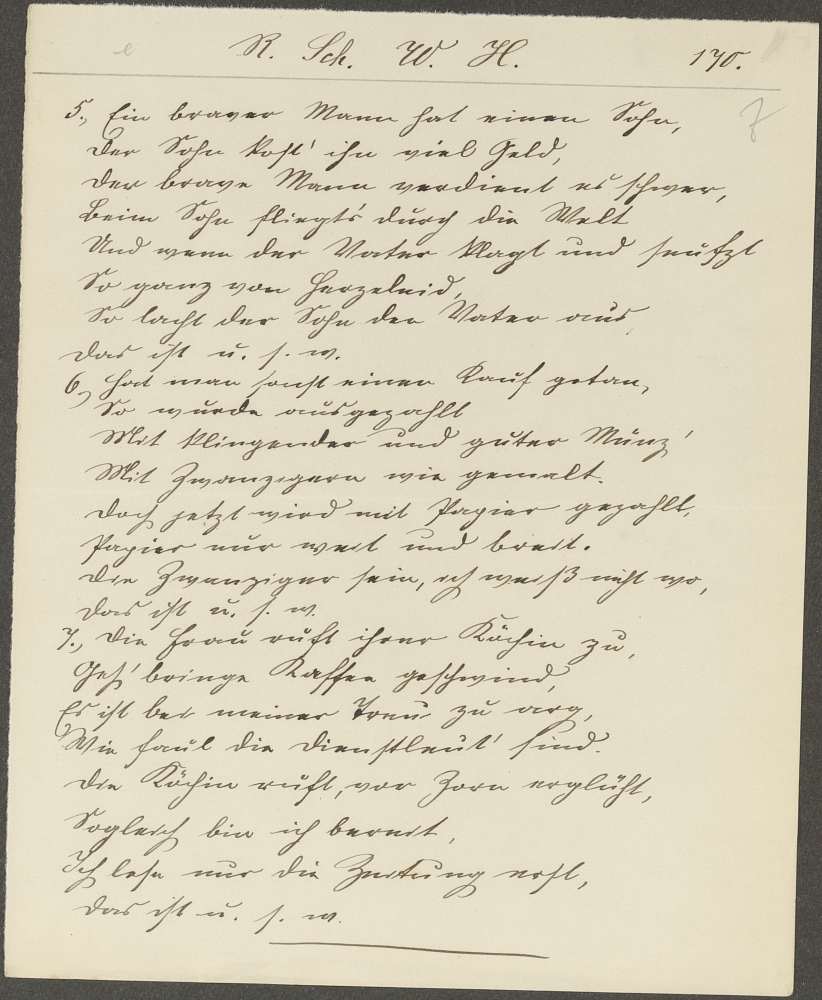 R. Sch. W. H. 170.
5., Ein braver Mann hat einen Sohn,
Der Sohn kost' ihn viel Geld,
Der brave Mann verdient es schwer,
Beim Sohn fliegt's durch die Welt
Und wenn der Vater klagt und seufzt
So ganz von Herzeleid,
So lacht der Sohn den Vater aus,
Das ist u. s. w.
6., Hat man sonst einen Kauf getan,
So wurde ausgezahlt
Mit klingender und guter Münz'
Mit Zwanzigern wie gemalt.
Doch jetzt wird mit Papier gezahlt,
Papier nur weit und breit.
Die Zwanziger sein, ich weiß nicht wo,
Das ist u. s. w.
7., Die Frau ruft ihrer Köchin zu,
Geh' bringe Kaffee geschwind,
Es ist bei meiner Treu zu arg,
Wie faul die Dienstleut' sind.
Die Köchin ruft, vor Zorn erglüht,
Sogleich bin ich bereit,
Ich lese nur die Zeitung erst,
Das ist u. s. w.